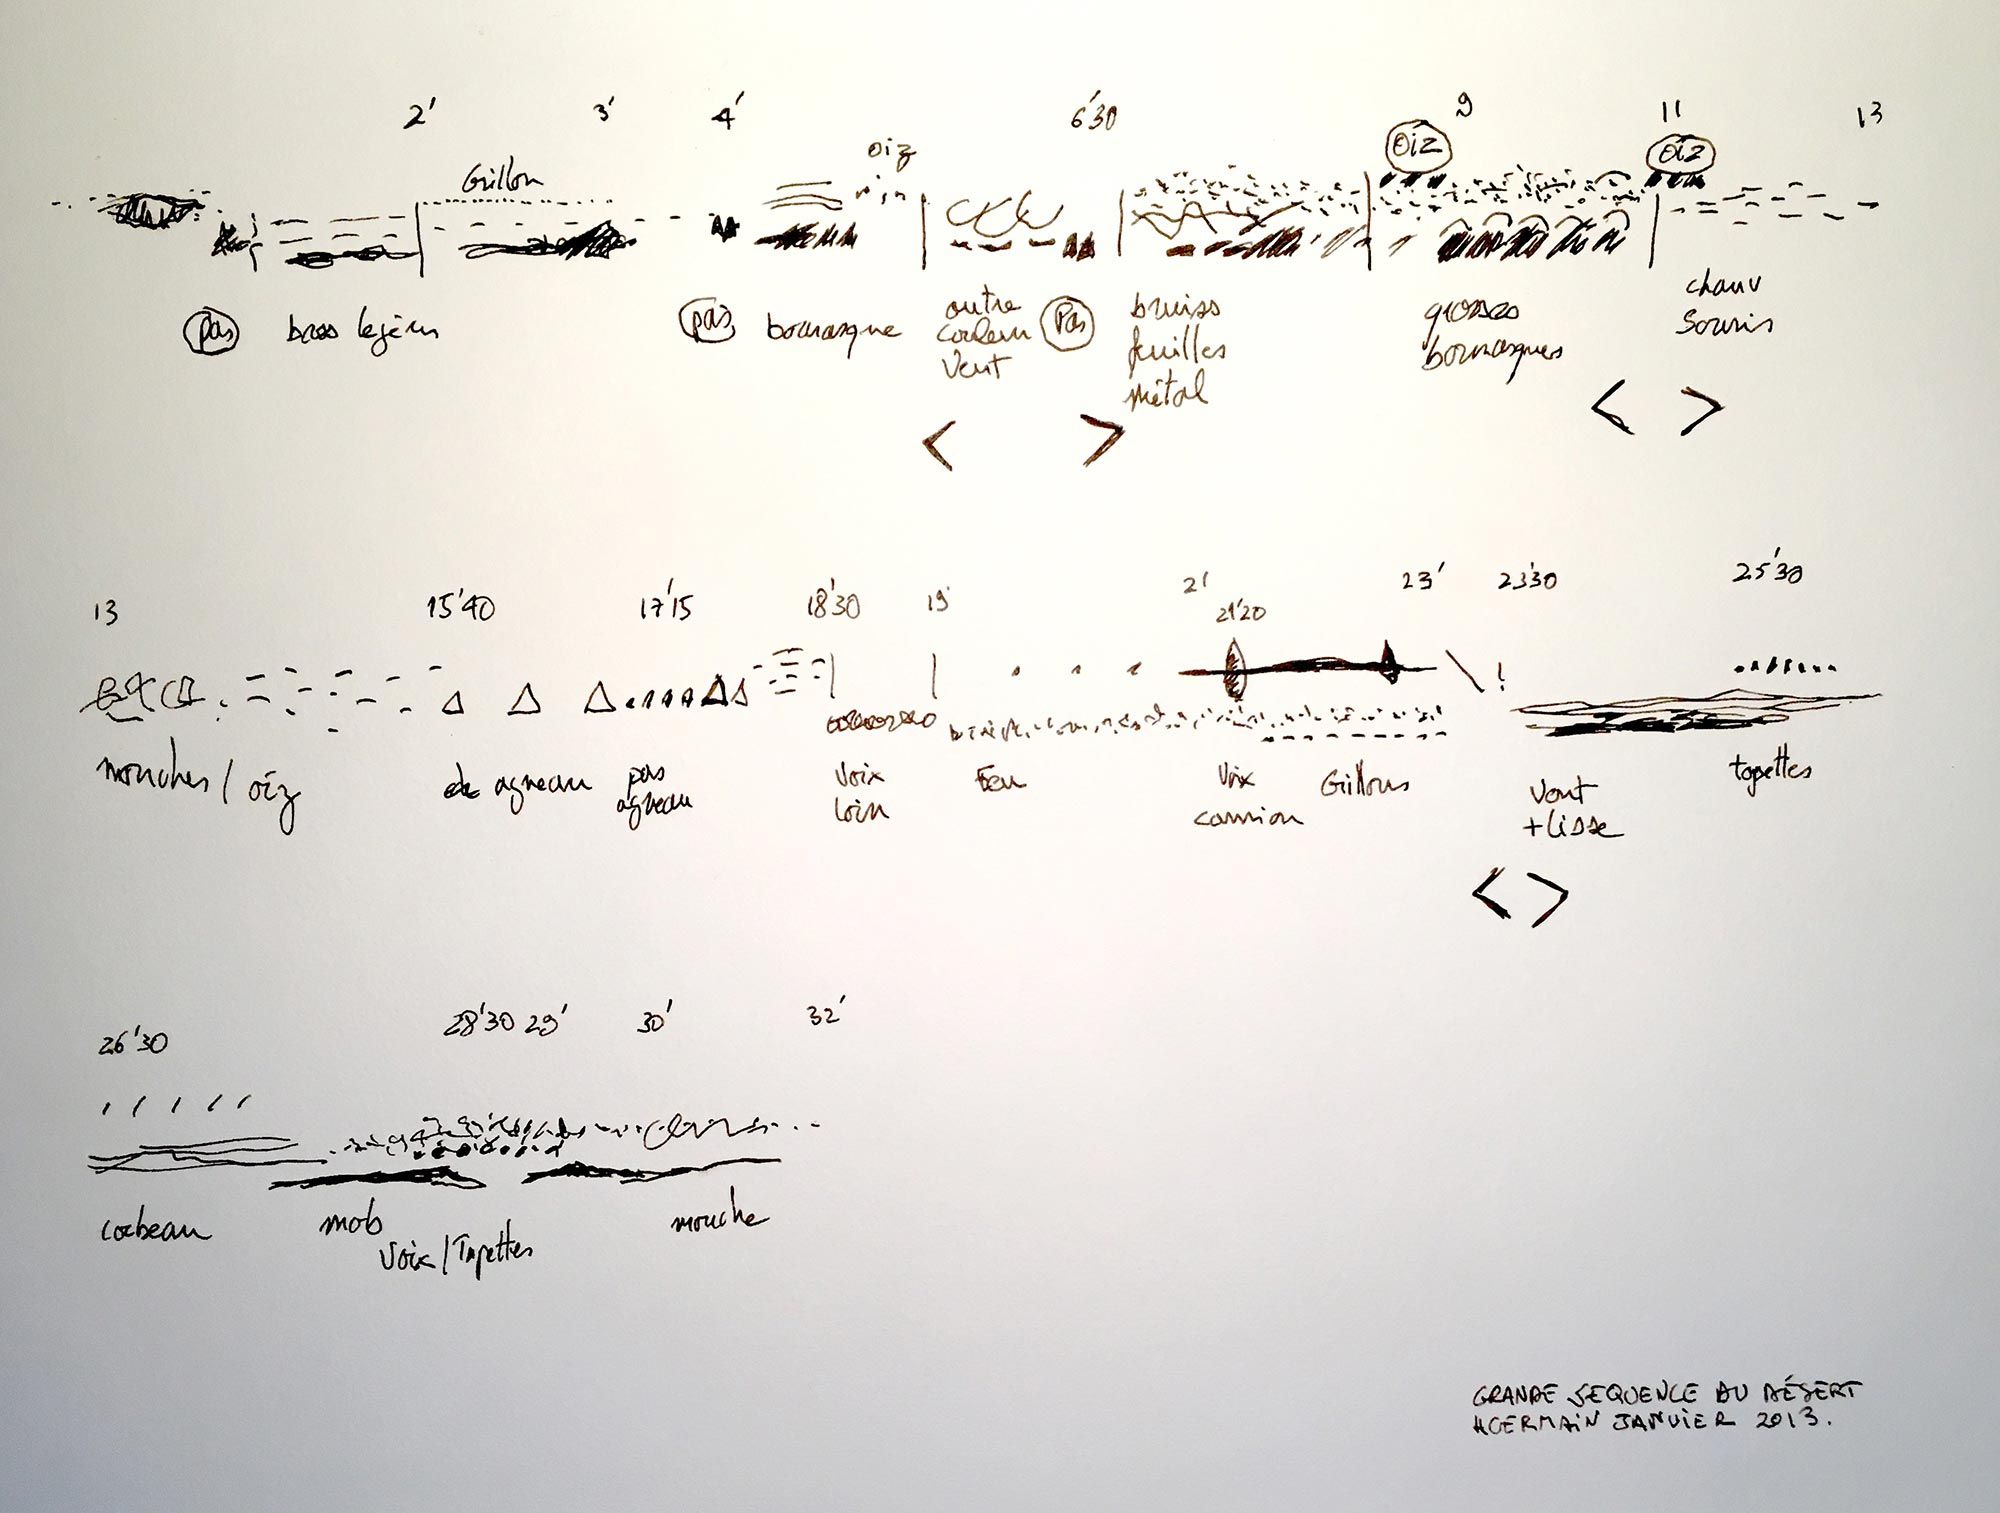 2' 3' 4' 6'30 9 11 13
Grillon oiz oiz oiz
pas pas bourrasque
outre
couleur
vent
pas
bruiss
feuilles
métal
grosses
bourrasques
chauv
souris
< > < >
13 15'40 17'15 18'30 19' 21' 23' 23'30 25'30
21'20
!
mouches / oiz
agneau
pas
agneau
voix
loin
Feu
voix
camion
Grillons
vent
+ lisse
tapettes
< >
26'30 28'30 29' 30' 32'
corbeau mob mouche
voix / Tapettes
GRANDE SEQUENCE DU DÉSERT
HGERMAIN JANVIER 2013.